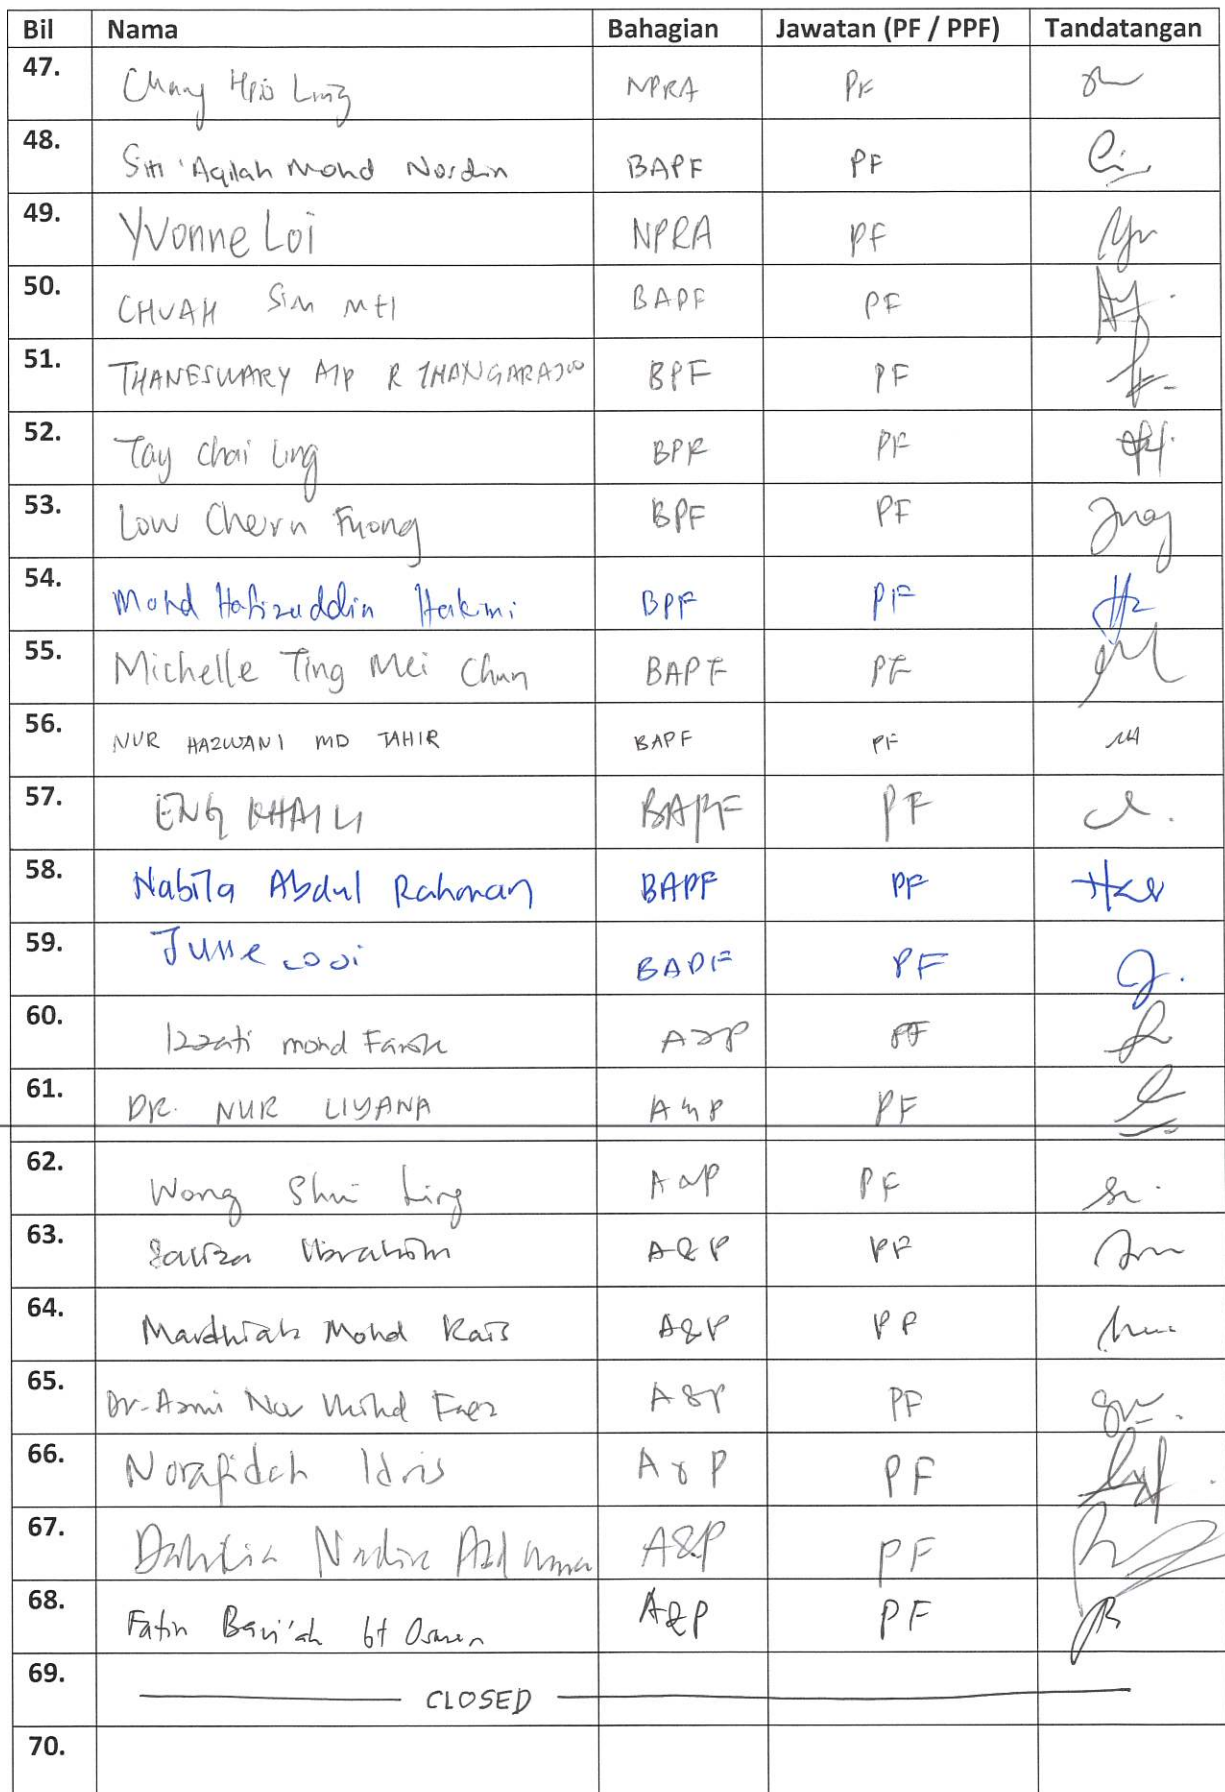 Bil Nama Bahagian Jawatan (PF / PPF) Tandatangan
47. Chang Hsiao Ling NPRA PF
48. Siti 'Aqilah Mohd Nordin BAPF PF
49. Yvonne Loi NPRA PF
50. CHUAH Sim Mei BAPF PF
51. THANESWARY A/P R THANGARAJOO BPF PF
52. Tay Chai Ling BPF PF
53. Low Chern Fuong BPF PF
54. Mohd Hafizuddin Hakimi BPF PF
55. Michelle Ting Mei Chun BAPF PF
56. NUR HAZWANI MD TAHIR BAPF PF
57. ENG KHAI LI BAPF PF
58. Nabila Abdul Rahman BAPF PF
59. June Looi BAPF PF
60. Izzati Mohd A&P PF
61. DR. NUR LIYANA A&P PF
62. Wong Shui Ling A&P PF
63. Ibrahim A&P PF
64. Mardhiah Mohd Rais A&P PF
65. Dr. Azmi Nor Mohd A&P PF
66. Norafidah Idris A&P PF
67. Dahlia Nadira A&P PF
68. Fatin bt Osman A&P PF
69. CLOSED
70.